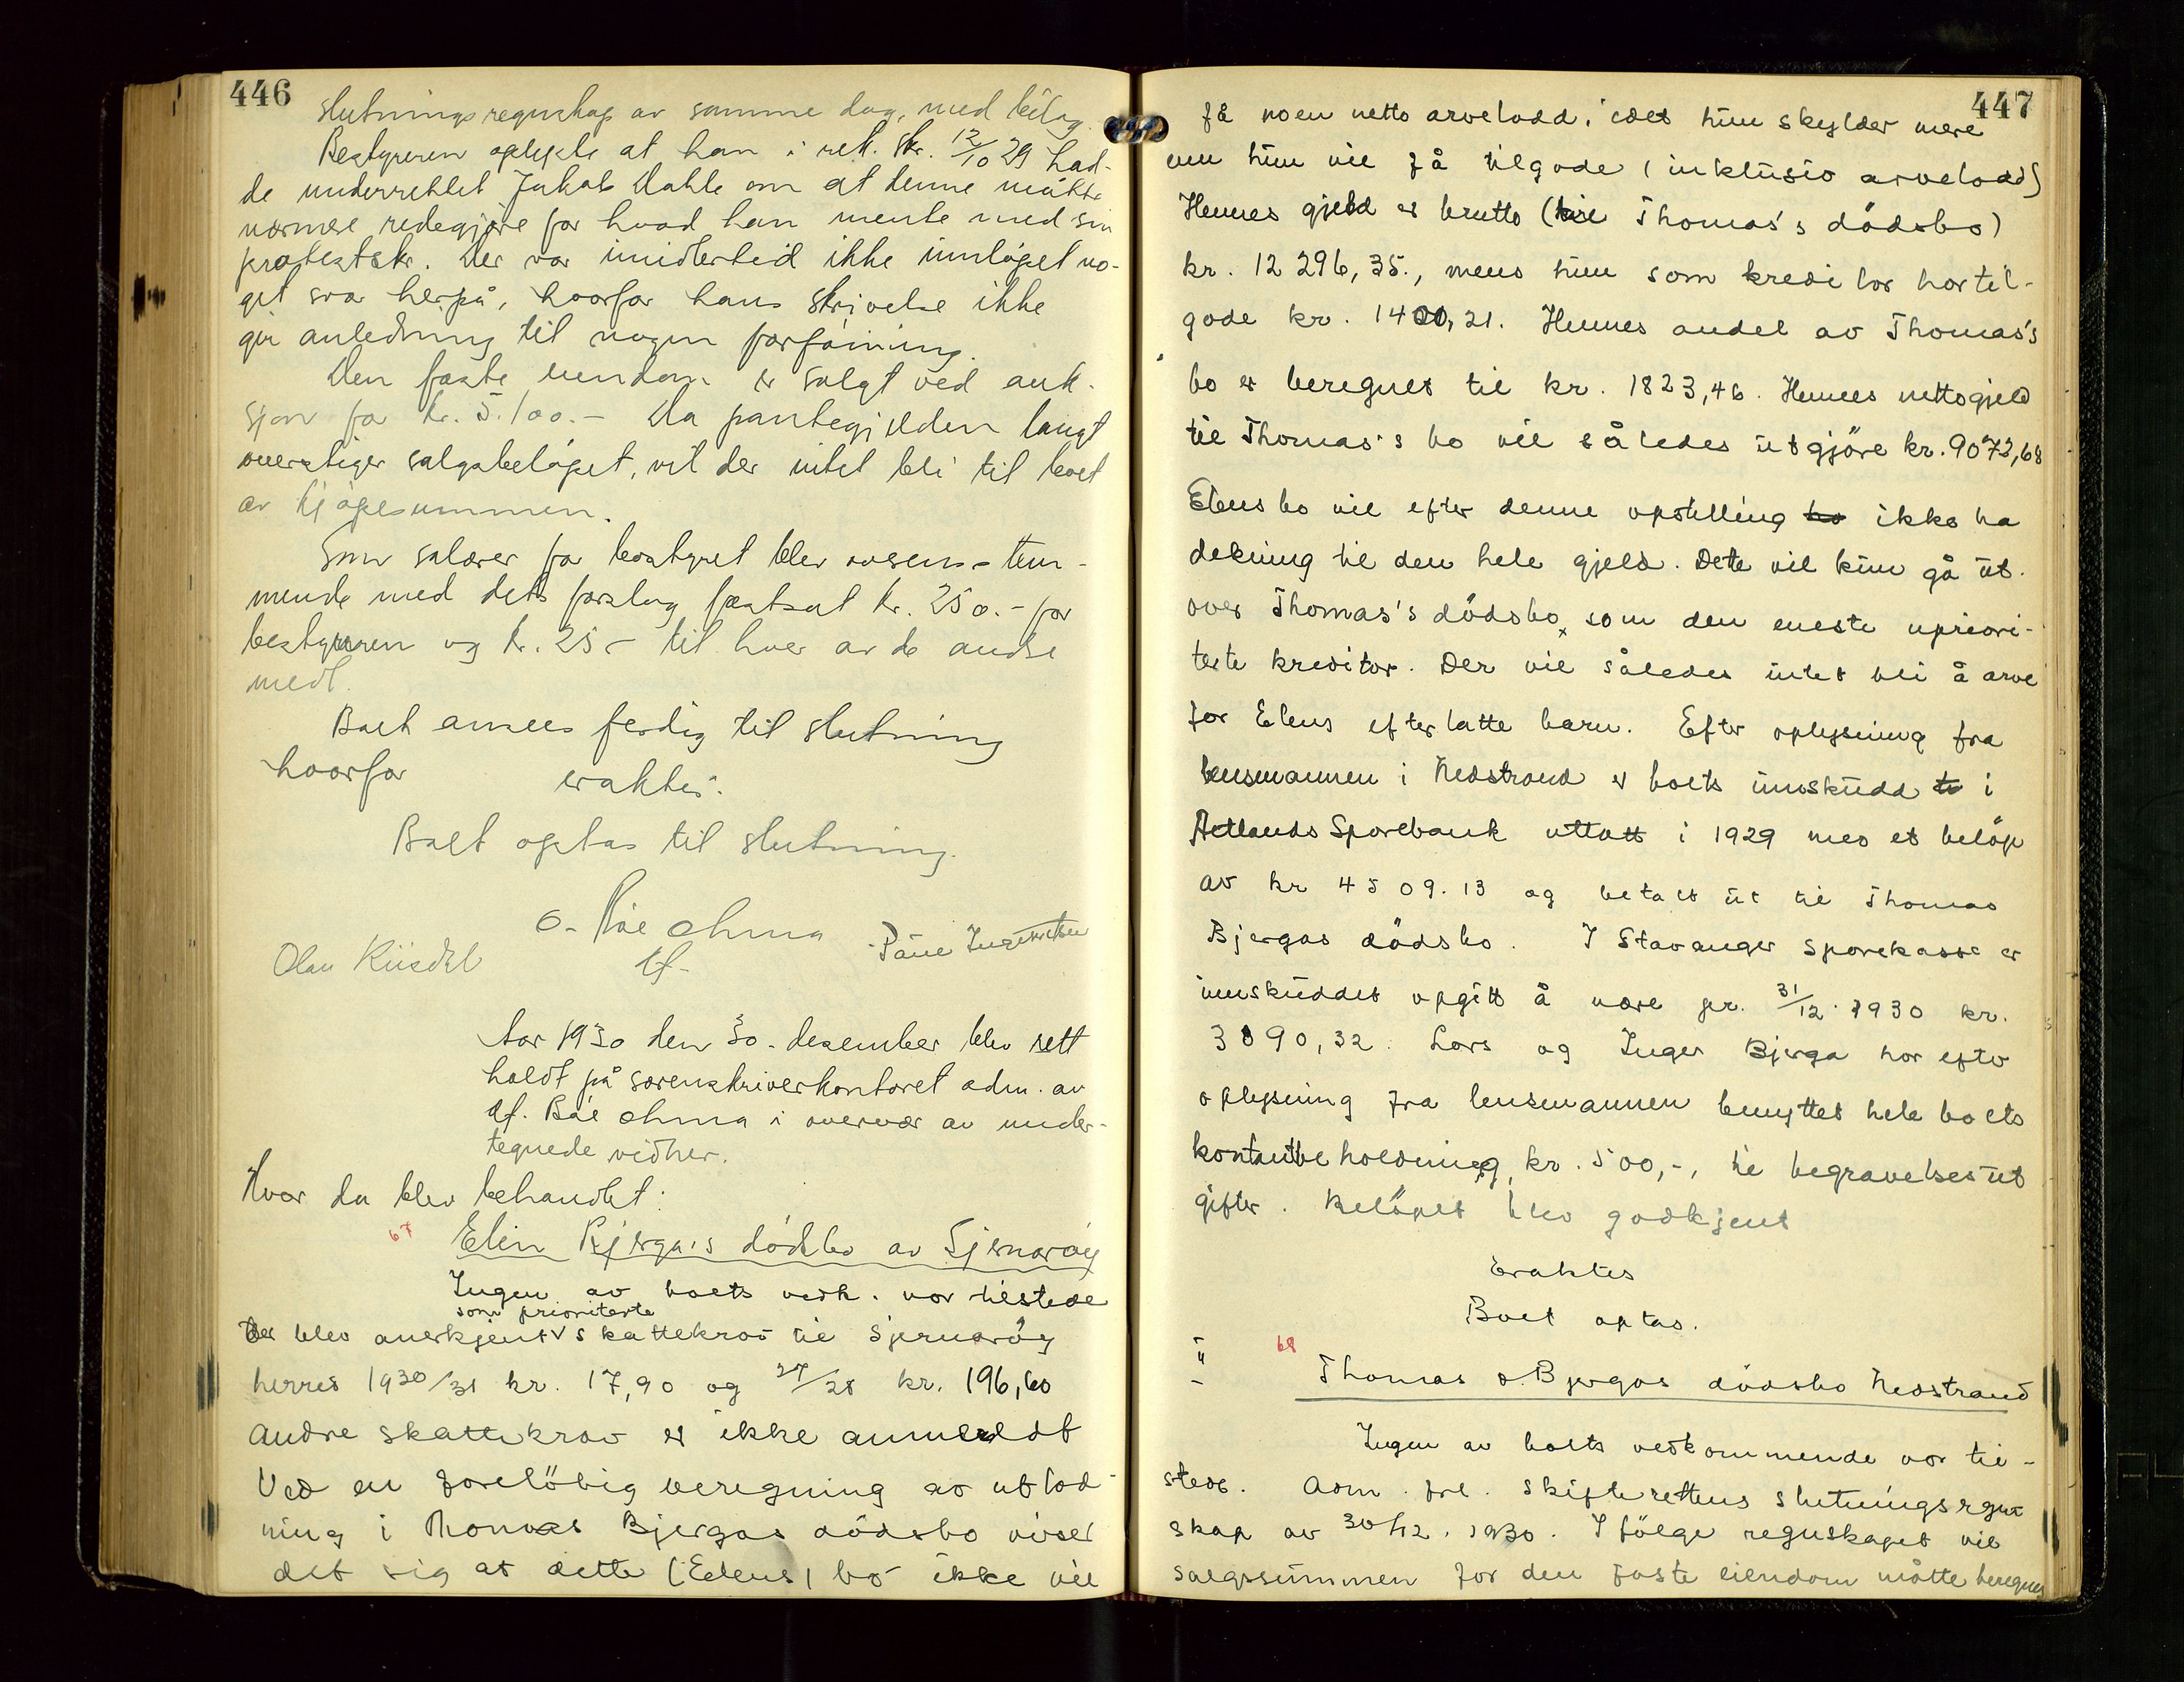 446
slutningsregnskap av samme dag, med bilag.
Bestyreren oplyste at han i rek. skr. 12/10 29 had-
de underrettet Jakob Dahle om at denne måtte
nærmere redegjøre for hvad han mente med sin
protestskr. Der var imidlertid ikke innløpet no-
get svar herpå, hvorfor hans skrivelse ikke
gir anledning til nogen forføining.
Den faste eiendom er solgt ved auk-
sjon for kr. 5.100.- Da pantegjelden langt
overstiger salgsbeløpet, vil der intet bli til boet
av kjøpesummen.
Som salærer for bostyret blev overensstem-
mende med dets forslag fastsat kr. 250.- for
bestyreren og kr. 25.- til hver av de andre
medl.
Boet ansees ferdig til slutning
hvorfor eraktes:
Boet optas til slutning.
O. Råe ohma
df.
Olav
Aar 1930 den 30. desember blev rett
holdt på sorenskriverkontoret adm. av
df. Båe ohma i overvær av under-
tegnede vidner.
Hvor da blev behandlet:
67 Elin Bjerga's dødsbo av Sjernarøy
Ingen av boets vedk. var tilstede
som prioriterte
Der blev anerkjent v skattekrav til Sjernarøy
herred 1930/31 kr. 17,90 og 27/28 kr. 196,60
Andre skattekrav er ikke anmeldt
Ved en foreløbig beregning av utlod-
ning i Thomas Bjergas dødsbo viser
det sig at dette (Elens) bo ikke vil
447
få noen netto arvelodd, idet hun skylder mere
enn hun vil få tilgode (inklusiv arvelodd)
Hennes gjeld er brutto (til Thomas's dödsbo)
kr. 12 296,35., mens hun som kreditor har til-
gode kr. 1400,21. Hennes andel av Thomas's
bo er beregnet til kr. 1823,46. Hennes nettogjeld
til Thomas's bo vil således utgjöre kr. 9072,68
Elens bo vil efter denne opstilling ikke ha
dekning til den hele gjeld. Dette vil kun gå ut-
over Thomas's dödsbo, som den eneste upriori-
terte kreditor. Der vil således intet bli å arve
for Elens efterlatte barn. Efter oplysning fra
lensmannen i Nedstrand er boets innskudd i
Aetlands Sparebank uttatt i 1929 med et beløp
av kr 4509.13 og betalt ut til Thomas
Bjergas dödsbo. I Stavanger Sparekasse er
innskuddet opgitt å være pr. 31/12. 1930 kr.
3890,32. Lars og Inger Bjerga har efter
oplysning fra lensmannen benyttet hele boets
kontantbeholdning, kr. 500,-, til begravelsesut
gifter. Beløpet blev godkjent
Eraktes
Boet optas.
68 Thomas O. Bjergas dödsbo Nedstrand
Ingen av boets vedkommende var til-
stede. Adm. frl. skifterettens slutningsregn
skap av 30/12. 1930. Ifölge regnskapet vil
salgssummen for den faste eiendom måtte beregnes